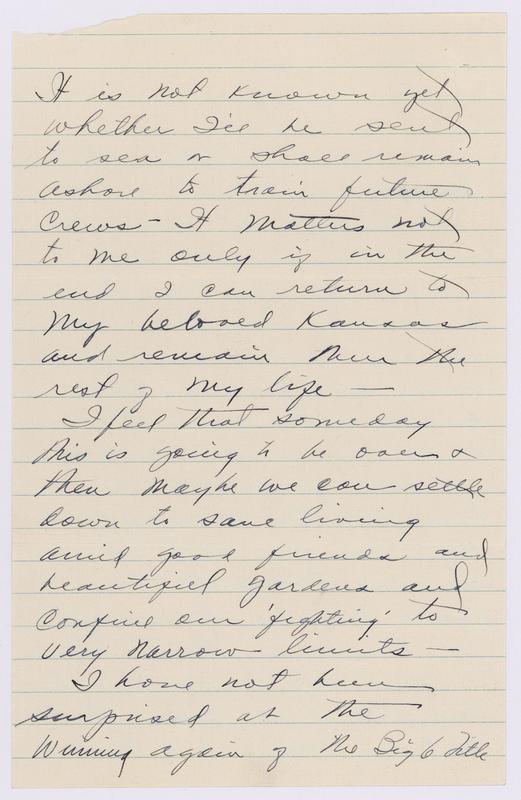 It is not known yet
whether I'll be sent
to sea or shall remain
ashore to train future
crews - It matters not
to me only if in the
end I can return to
my beloved Kansas
and remain there the
rest of my life —
I feel that someday
this is going to be over &
then maybe we can settle
down to sane living
amid good friends and
beautiful gardens and
confine our 'fighting' to
very narrow limits —
I have not been
surprised at the
winning again of the Big 6 Title